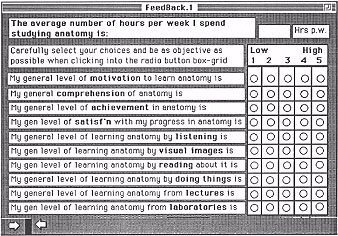 FeedBack.1
The average number of hours per week I spend
studying anatomy is:
Hrs p.w.
Carefully select your choices and be as objective as
possible when clicking into the radio button box-grid
Low High
1 2 3 4 5
My general level of motivation to learn anatomy is
My general comprehension of anatomy is
My general level of achievement in anatomy is
My gen level of satisf'n with my progress in anatomy is
My general level of learning anatomy by listening is
My gen level of learning anatomy by visual images is
My gen level of learning anatomy by reading about it is
My gen level of learning anatomy by doing things is
My general level of learning anatomy from lectures is
My gen level of learning anatomy from laboratories is